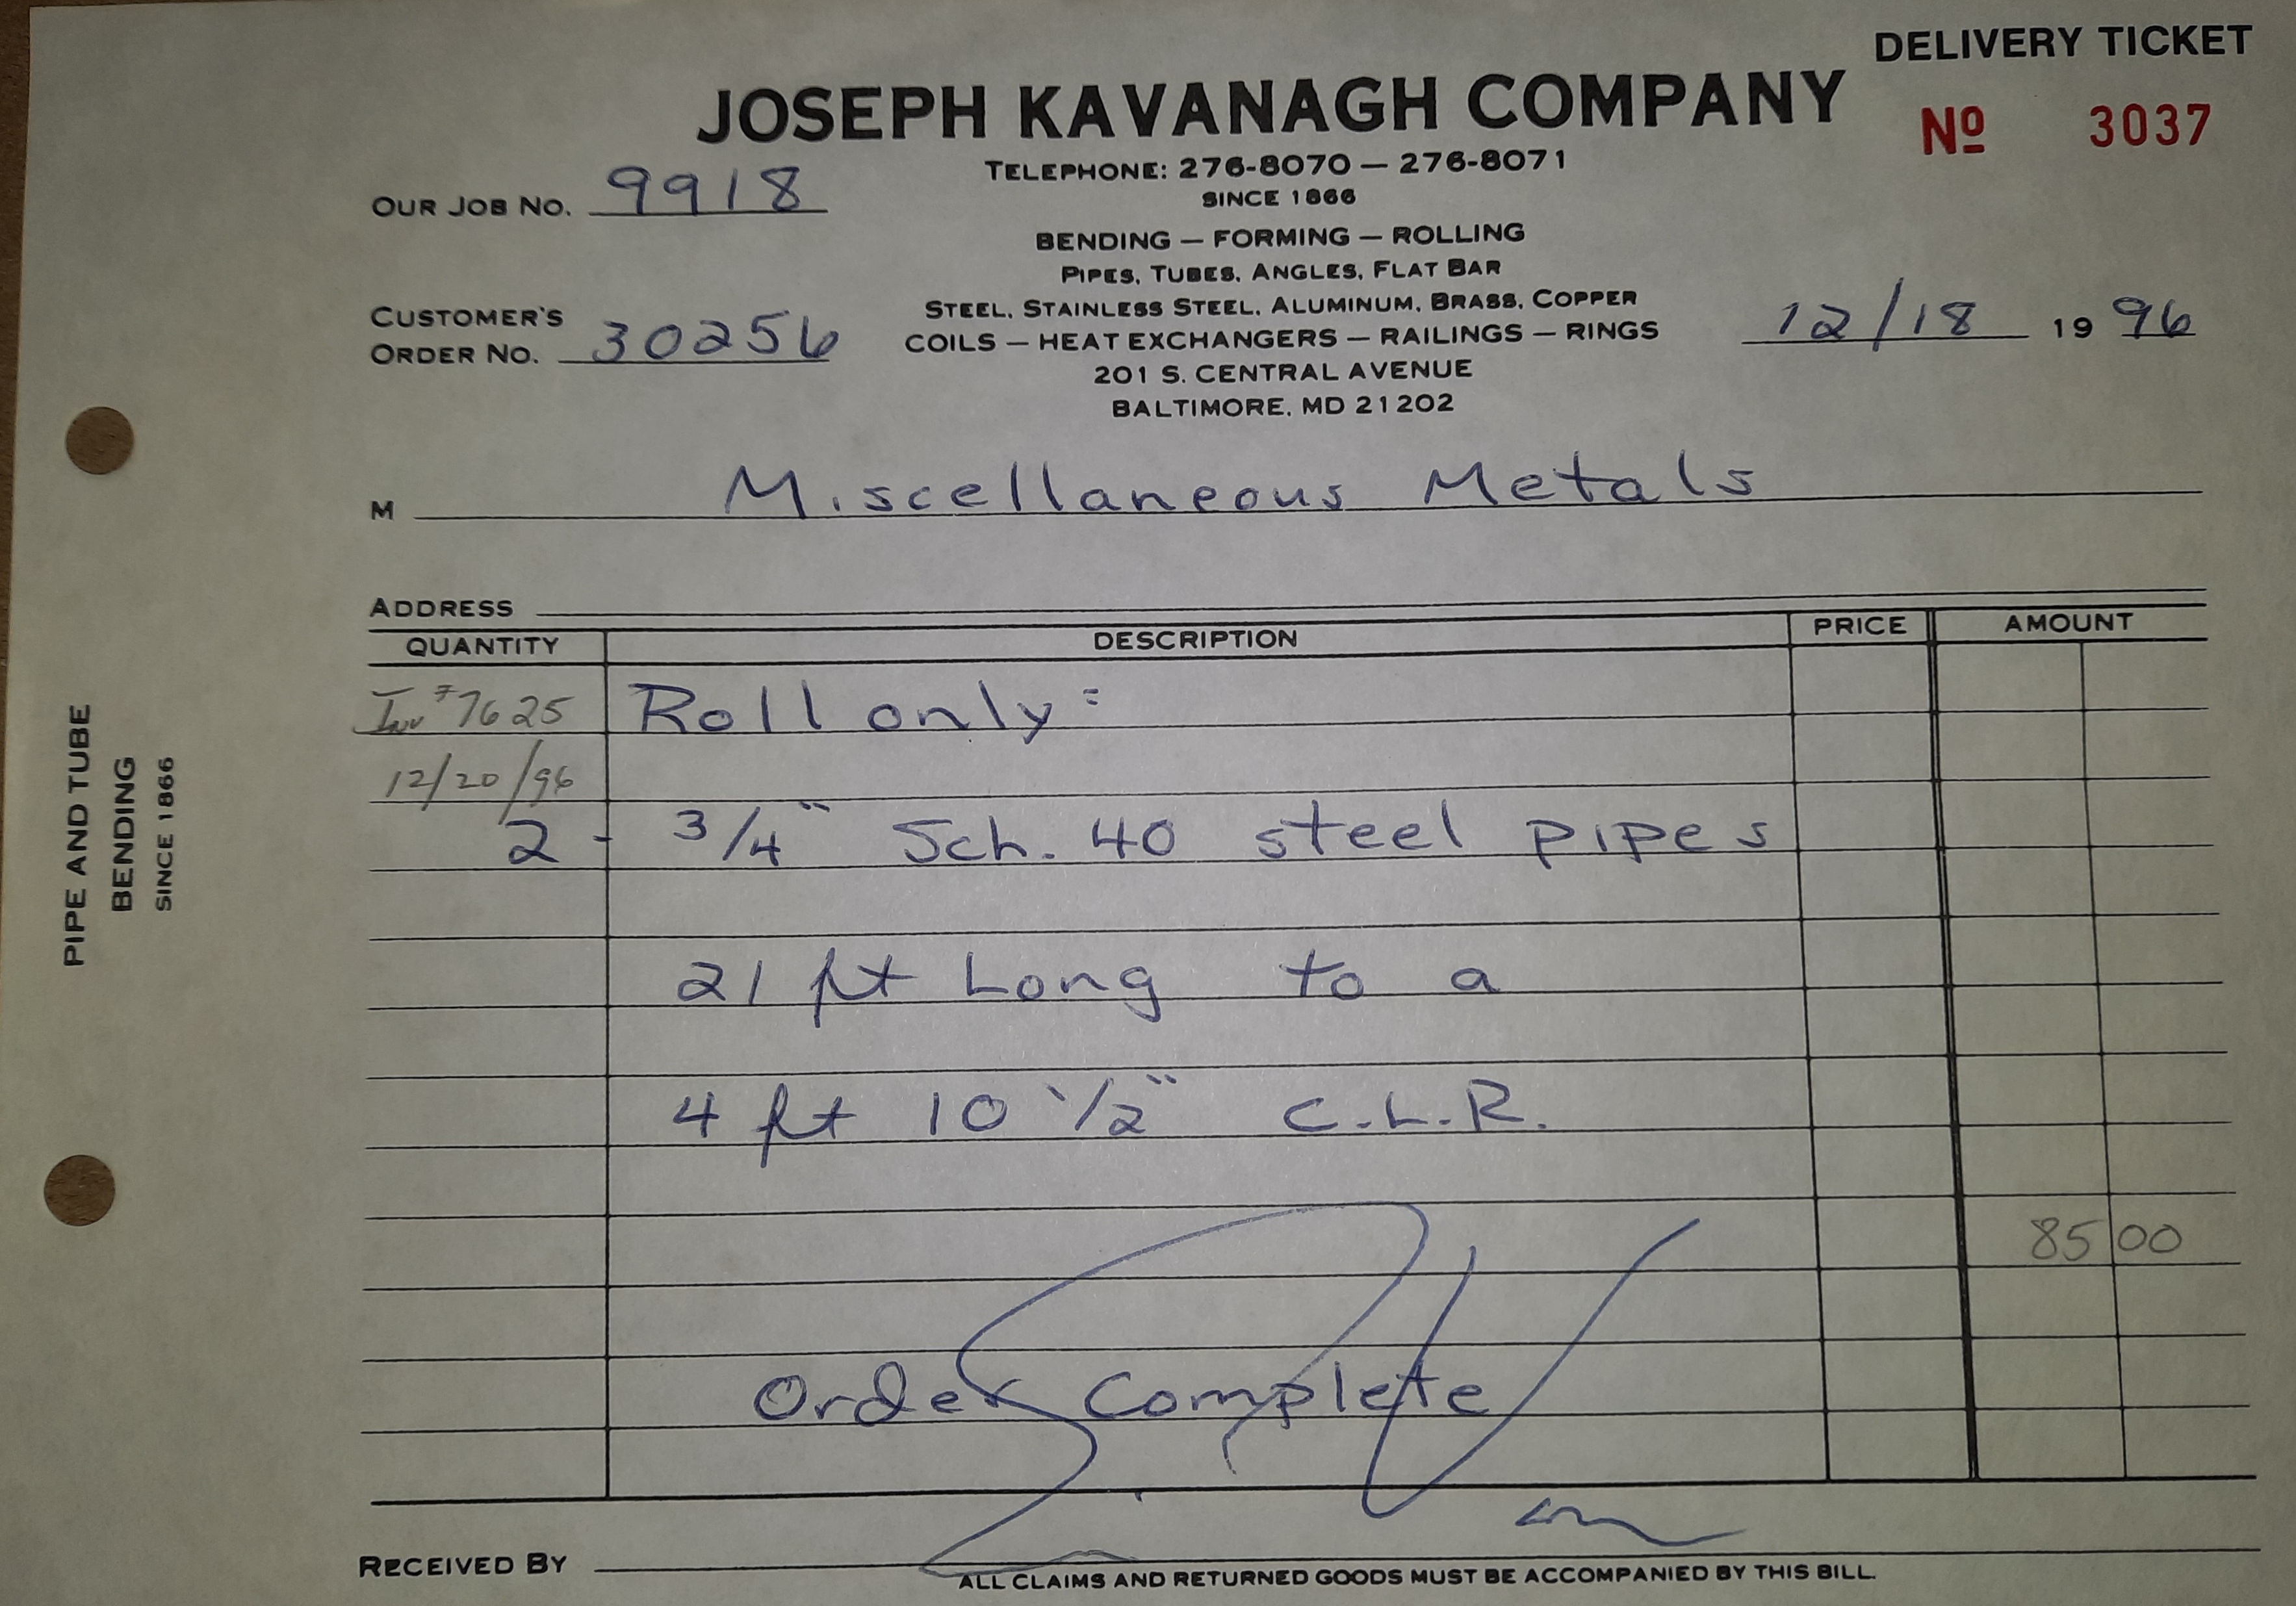 DELIVERY TICKET
JOSEPH KAVANAGH COMPANY
Nº 3037
TELEPHONE: 276-8070 — 276-8071
SINCE 1866
OUR JOB NO. 9918
BENDING — FORMING — ROLLING
PIPES, TUBES, ANGLES, FLAT BAR
STEEL, STAINLESS STEEL, ALUMINUM, BRASS, COPPER
CUSTOMER'S
ORDER NO. 30256
COILS — HEAT EXCHANGERS — RAILINGS — RINGS
12/18 19 96
201 S. CENTRAL AVENUE
BALTIMORE, MD 21202
M Miscellaneous Metals
ADDRESS
QUANTITY DESCRIPTION PRICE AMOUNT
Inv #7625 Roll only:
12/20/96
2 - 3/4" Sch. 40 steel pipes
21 ft Long to a
4 ft 10 1/2" C.L.R.
85 00
Order Complete
RECEIVED BY
ALL CLAIMS AND RETURNED GOODS MUST BE ACCOMPANIED BY THIS BILL.
PIPE AND TUBE
BENDING
SINCE 1866